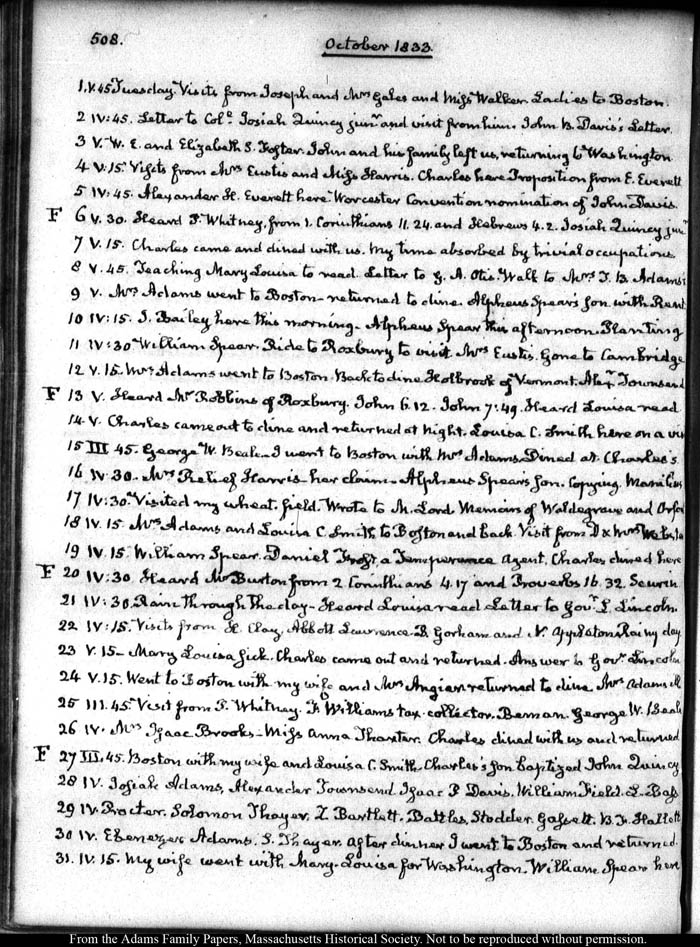 508.
October 1833.
1. V. 45 Tuesday. Visits from Joseph and Mrs Gales and Miss Walker. Ladies to Boston.
2 IV: 45. Letter to Colo. Josiah Quincy junr and visit from him. John B. Davis's Letter.
3 V. W. E. and Elizabeth S. Foster. John and his family left us, returning to Washington
4 V. 15. Visits from Mrs Eustis and Miss Harris. Charles here Proposition from E. Everett
5 IV: 45. Alexander H. Everett here. Worcester Convention nomination of John Davis.
F 6 V. 30. Heard P. Whitney, from 1. Corinthians 11. 24. and Hebrews 4. 2. Josiah Quincy junr
7 V. 15. Charles came and dined with us. My time absorbed by trivial occupations
8 V. 45. Teaching Mary Louisa to read. Letter to G. A. Otis. Walk to Mrs T. B. Adams's
9 V. Mrs Adams went to Boston - returned to dine. Alpheus Spear's son with Rent
10 IV: 15. J. Bailey here this morning - Alpheus Spear this afternoon. Planting
11 IV: 30 William Spear. Ride to Roxbury to visit Mrs Eustis. Gone to Cambridge
12 V. 15. Mrs Adams went to Boston. Back to dine Holbrook of Vermont. Alexr Townsend
F 13 V. Heard Mr Robbins of Roxbury. John 6. 12. John 7: 49. Heard Louisa read
14. V. Charles came out to dine and returned at Night. Louisa C. Smith here on a
15 III 45. George W. Beale - I went to Boston with Mrs Adams. Dined at Charles's
16 IV. 30. Mrs Relief Harris - her claim. Alpheus Spear's son. Copying.
17 IV: 30. Visited my wheat field. Wrote to M. Lord Memoirs of Waldegrave and
18 IV. 15 Mrs Adams and Louisa C. Smith to Boston and back. Visit from D & Mrs
19 IV. 15. William Spear. Daniel Frost, a Temperance Agent. Charles dined here
F 20 IV: 30. Heard Mr Burton from 2 Corinthians 4. 17 and Proverbs 16. 32.
21 IV: 30. Rain through the day - Heard Louisa read Letter to Govr L. Lincoln.
22 IV: 15. Visits from H. Clay, Abbott Lawrence. B. Gorham and N. Appleton Rainy day
23 V. 15 - Mary Louisa sick. Charles came out and returned. Answer to Govr Lincoln
24 V. 15. Went to Boston with my wife and Mrs Angier returned to dine. Mrs Adams ill
25 III. 45. Visit from P. Whitney. F. Williams tax collector. Beman. George W. Beale
26 IV. Mrs Isaac Brooks - Miss Anna Thaxter. Charles dined with us and returned
F 27 III. 45. Boston with my wife and Louisa C. Smith. Charles's son baptized John Quincy
28 IV. Josiah Adams, Alexander Townsend Isaac P Davis. William Field. L. Bass
29 IV. Procter. Solomon Thayer. Z. Bartlett. Battles, Stodder. Gassett. B. F. Hallett
30 IV. Ebenezer Adams, S. Thayer. After dinner I went to Boston and returned.
31. IV. 15. My wife went with Mary-Louisa for Washington. William Spear here
From the Adams Family Papers, Massachusetts Historical Society. Not to be reproduced without permission.